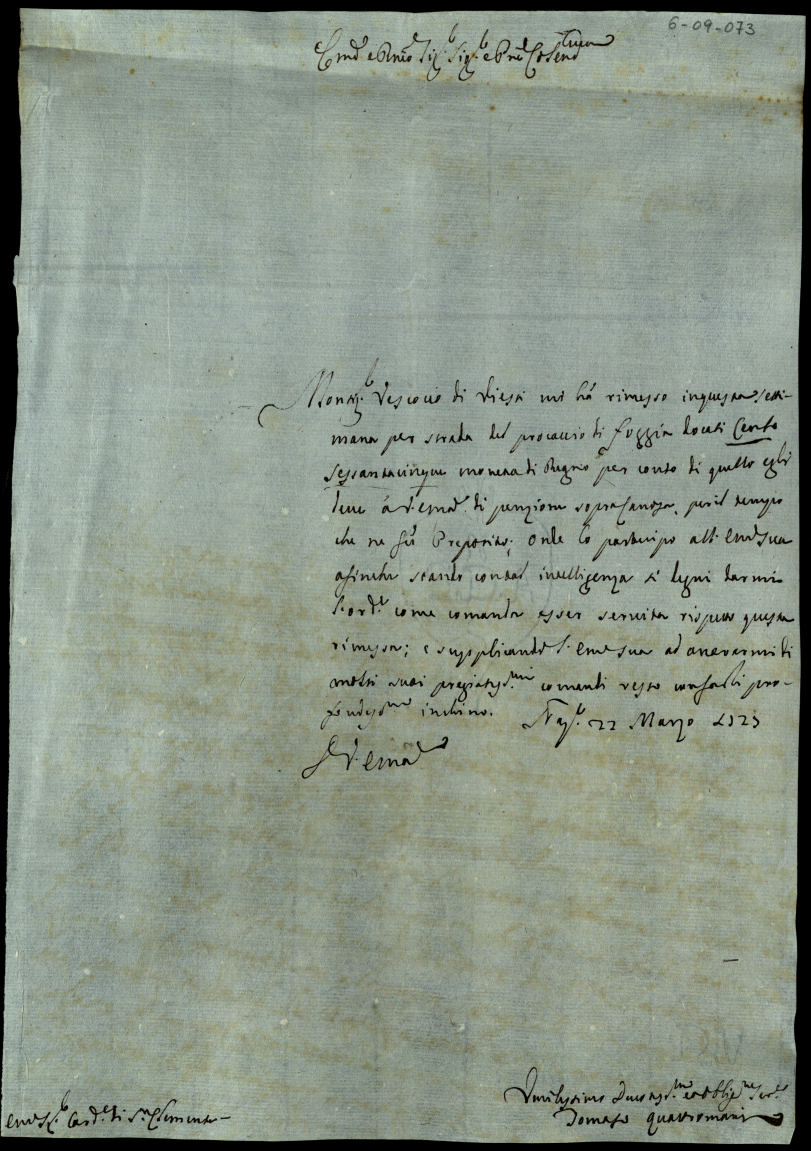 6-09-073
Em.º e Rmo Sig.r Sig.r e Pne Colend.mo
Monsig.r Vescovo di Viesti mi hà rimesso in questa setti-
mana per strada del procaccio di foggia docati Cento
sessantacinque moneta di Regno per conto di quello egli
deve à V. Em.ª di penzione sopra, per il tempo
che ne fù Preposito; onde lo partecipo all' Em.ª sua
afinche stando con tal intelligenza si degni darmi
l'ord.e come comanda esser servita rispetto questa
rimessa; e supplicando l' Em.ª sua ad onorarmi di
molti suoi pregiatiss.mi comandi resto con farli pro-
fondiss.mo inchino. Nap.li 22 Marzo 1723
D. V. Em.ª
Em.º Sig.r Card.le di S.n Clemente
Umilissimo Devotis.mo et obblig.mo Ser.re
Tomaso Quattromani